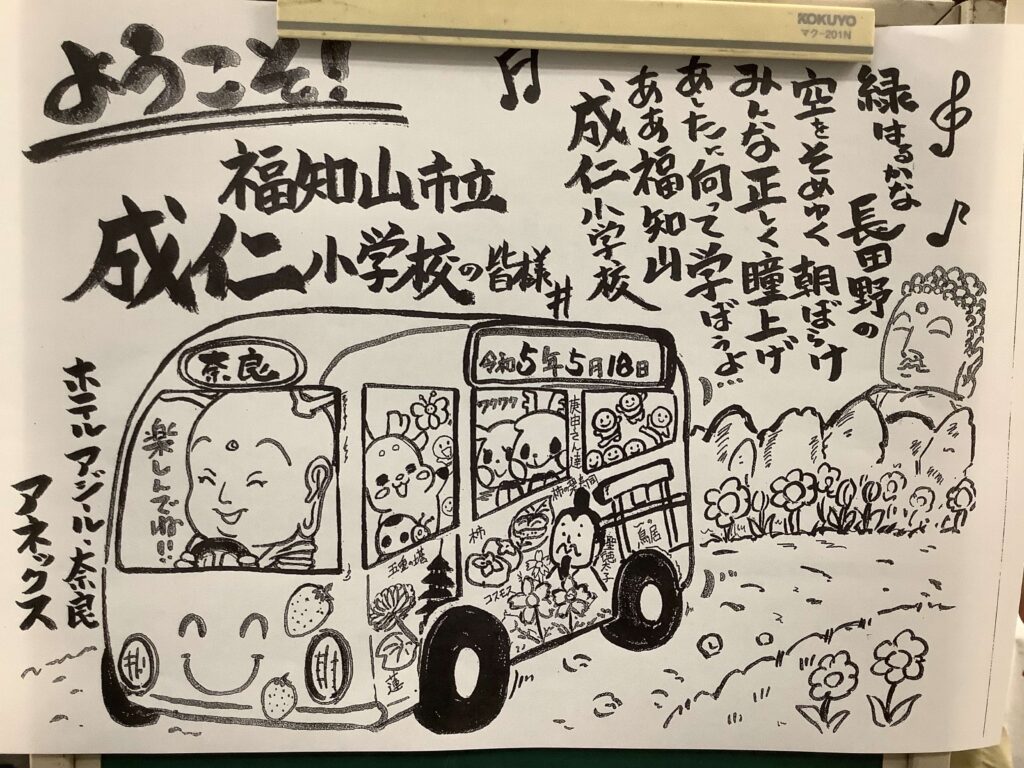 KOKUYO
マク-201N
ようこそ!
福知山市立
成仁小学校の皆様
緑はるかな 長田野の
空をそめゆく 朝ぼらけ
みんな正しく 瞳上げ
あしたに向って 学ぼうよ…
ああ福知山
成仁小学校
奈良
令和5年5月18日
楽しんでね!!
ワクワク
庚申さん達
柿の葉寿司
柿
聖徳太子
鳥居
五重の塔
コスモス
蓮
ホテルアジール・奈良
アネックス